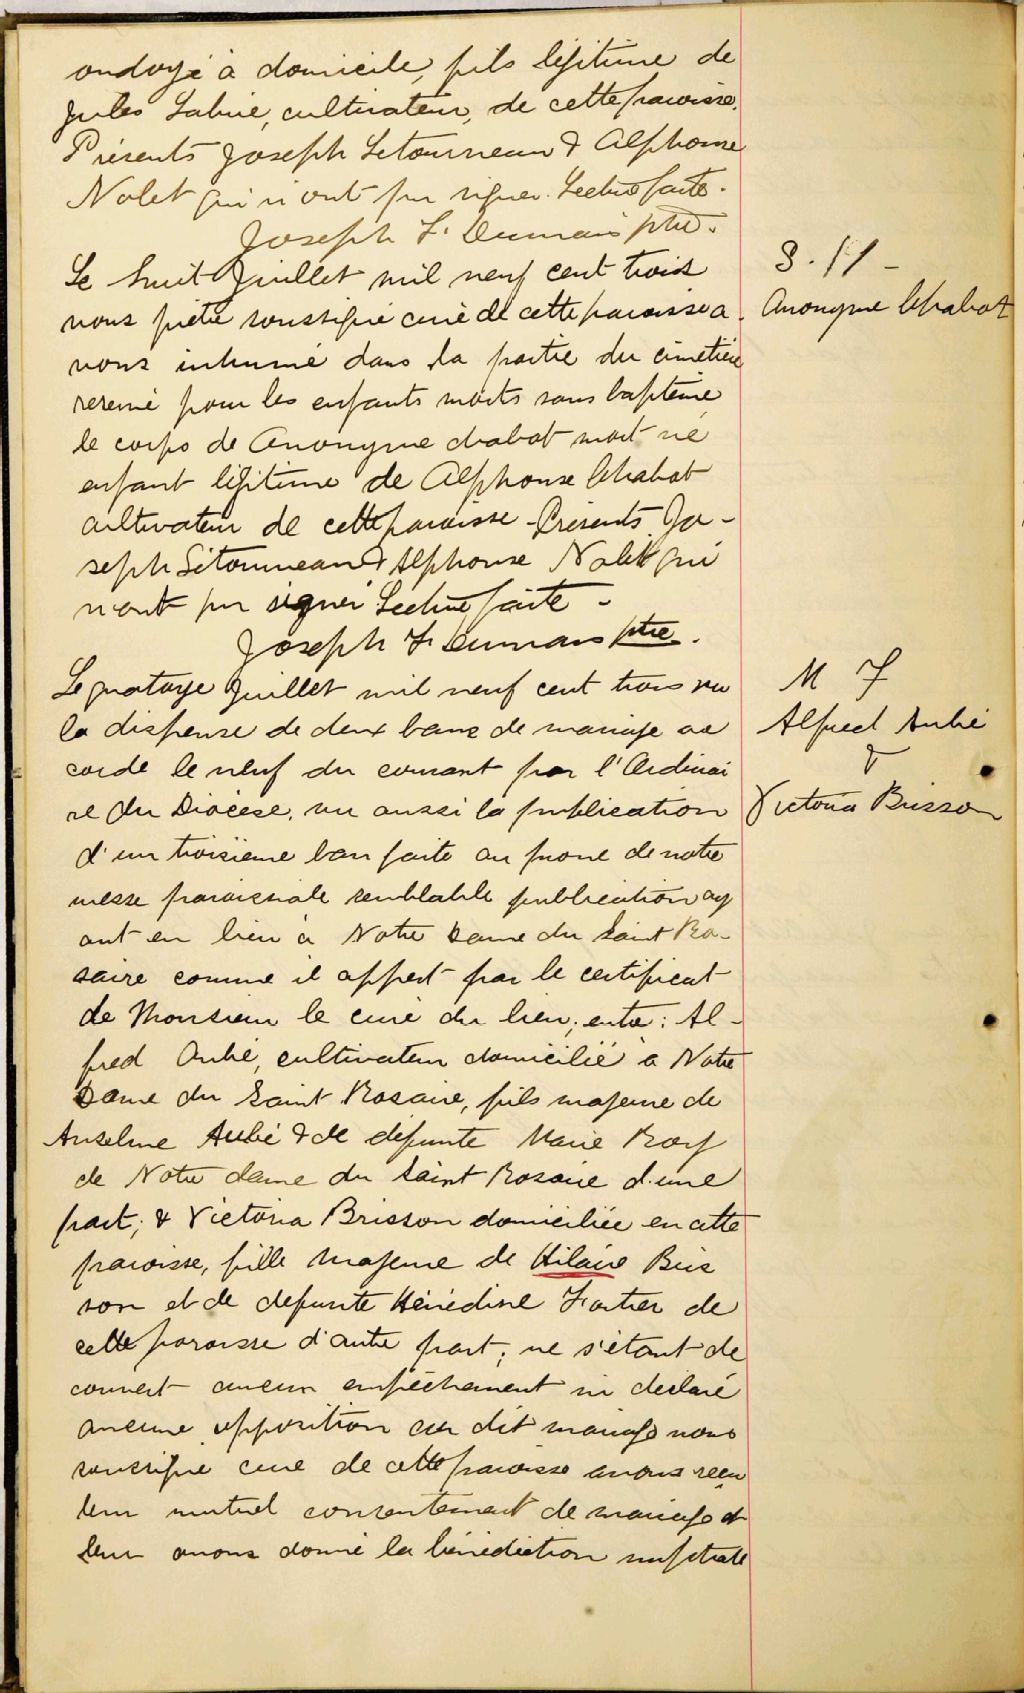 ondoyé à domicile, fils légitime de
Jules Labrie, cultivateur, de cette paroisse.
Présents Joseph Letourneau & Alphonse
Nolet qui n'ont pu signer. Lecture faite.
Joseph F. Dumais ptre.
Le huit Juillet mil neuf cent trois
nous prêtre soussigné curé de cette paroisse a
vons inhumé dans la partie du cimetière
reservé pour les enfants morts sans baptême
le corps de Anonyme chabot mort né
enfant légitime de Alphonse Chabot
cultivateur de cette paroisse - Présents Jo-
seph Létourneau & Alphonse Nolet qui
n'ont pu signer Lecture faite -
Joseph F. Dumais ptre.
S. 11 -
Anonyme Chabot
Le quatorze Juillet mil neuf cent trois vu
la dispense de deux bans de mariage ac
cordé le neuf du courant par l'Ordinai
re du Diocèse, vu aussi la publication
d'un troisième ban faite au prone de notre
messe paroissiale semblable publication ay
ant eu lieu à Notre Dame du Saint Ro-
saire comme il appert par le certificat
de Monsieur le curé du lieu; entre: Al-
fred Aubé, cultivateur domicilié à Notre
Dame du Saint Rosaire, fils majeur de
Anselme Aubé & de défunte Marie Roy
de Notre dame du Saint Rosaire d'une
part; & Victoria Brisson domiciliée en cette
paroisse, fille majeure de Hilaire Bris
son et de defunte Hénédine Fortier de
cette paroisse d'autre part; ne s'étant dé
couvert aucun empêchement ni déclaré
aucune opposition au dit mariage nous
soussigné curé de cette paroisse avons reçu
leur mutuel consentement de mariage et
leur avons donné la bénédiction nuptiale
M 7
Alfred Aubé
&
Victoria Brisson